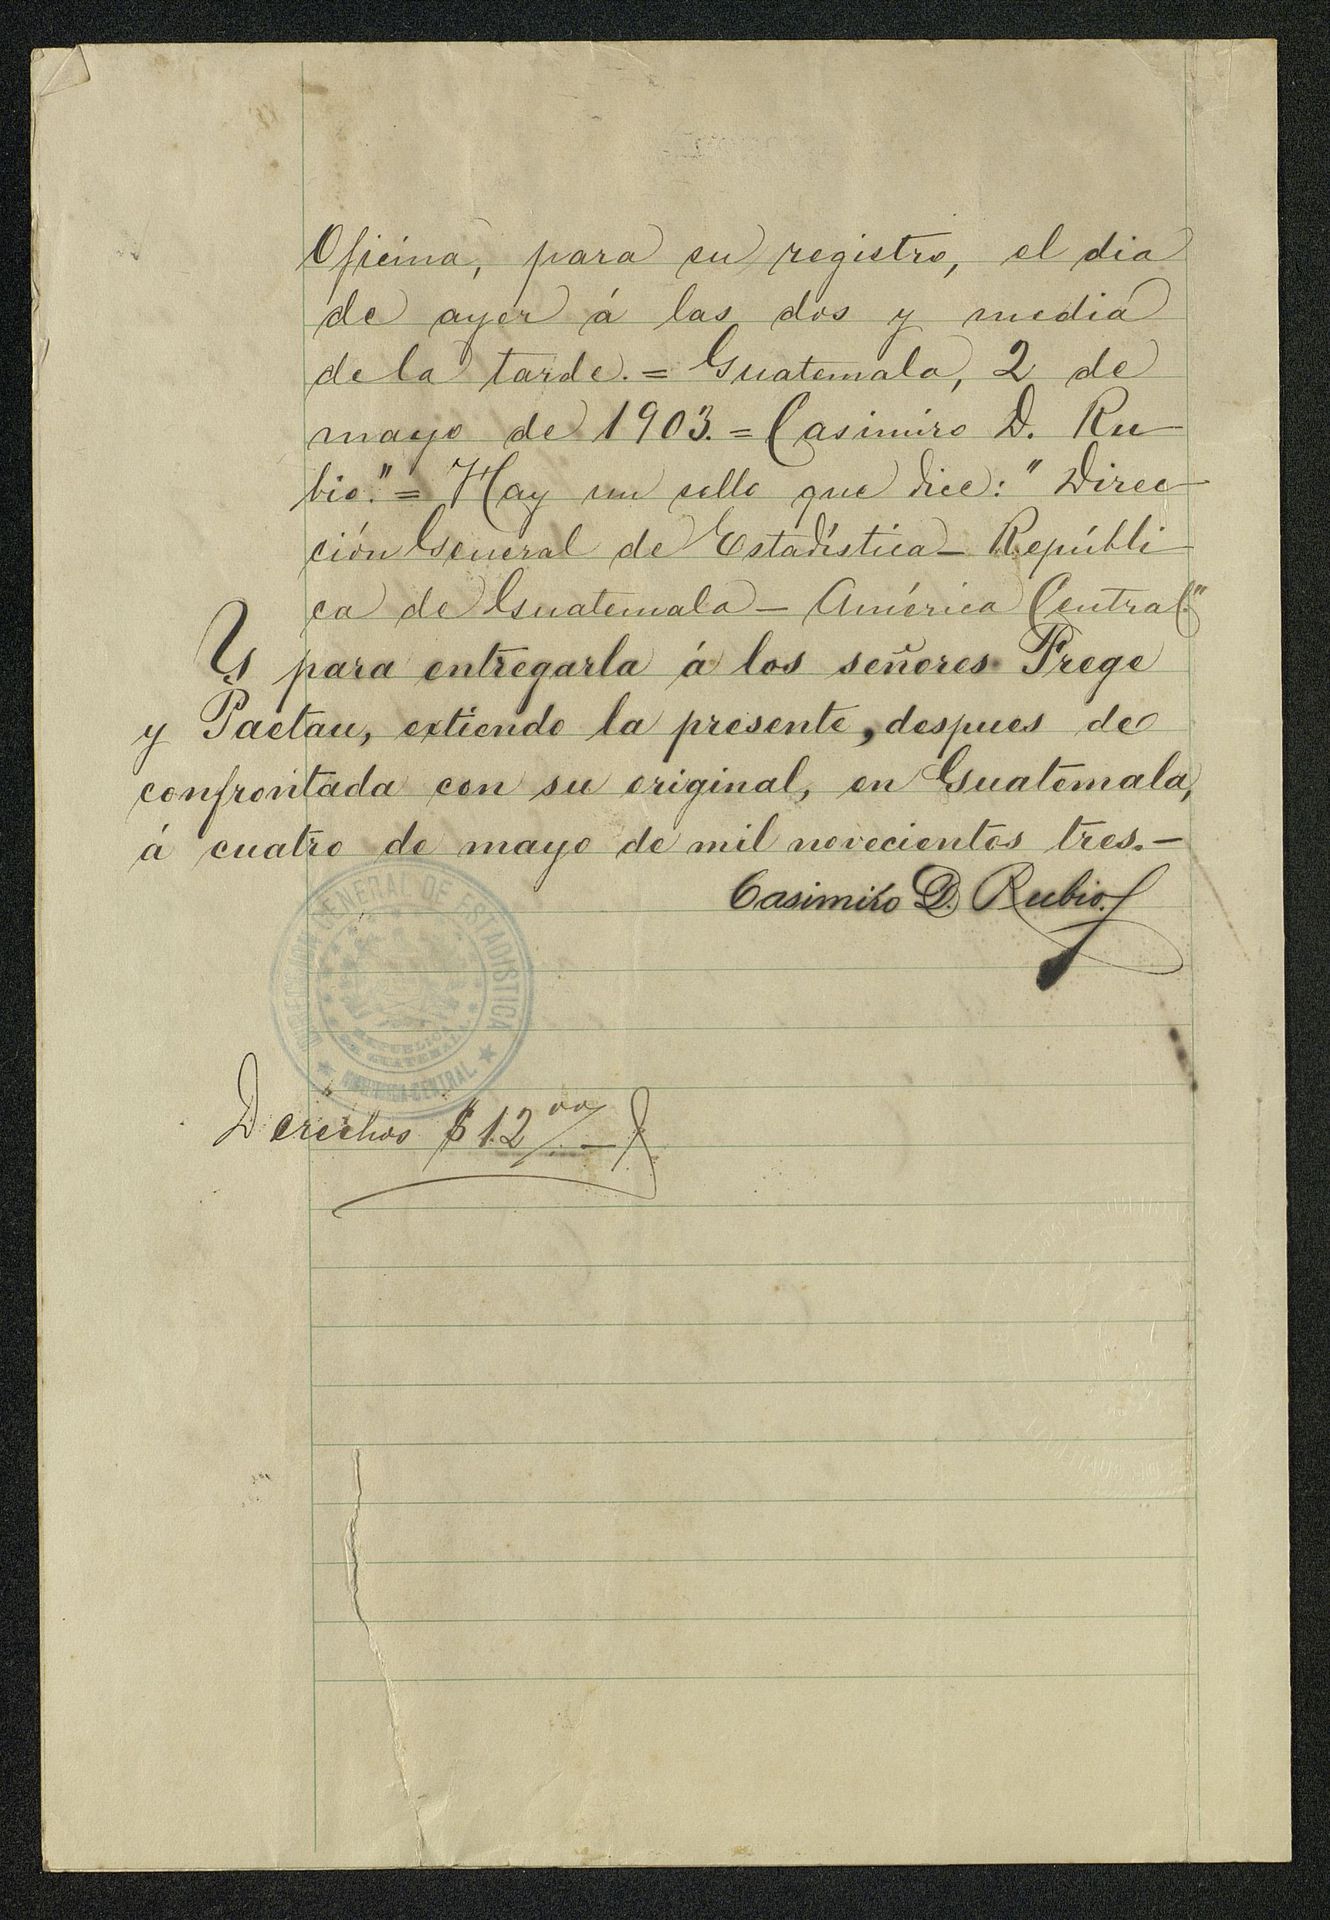 Oficina, para su registro, el dia
de ayer á las dos y media
de la tarde. = Guatemala, 2 de
mayo de 1903. = Casimiro D. Ru-
bio." = Hay un sello que dice: "Direc-
ción General de Estadística - Repúbli-
ca de Guatemala - América Central."
Y para entregarla á los señores Frege
y Paetau, extiendo la presente, despues de
confrontada con su original, en Guatemala,
á cuatro de mayo de mil novecientos tres. -
Casimiro D. Rubio.
DIRECCION GENERAL DE ESTADISTICA
REPUBLICA
DE GUATEMALA
★ AMERICA-CENTRAL ★
Derechos $ 12 00/